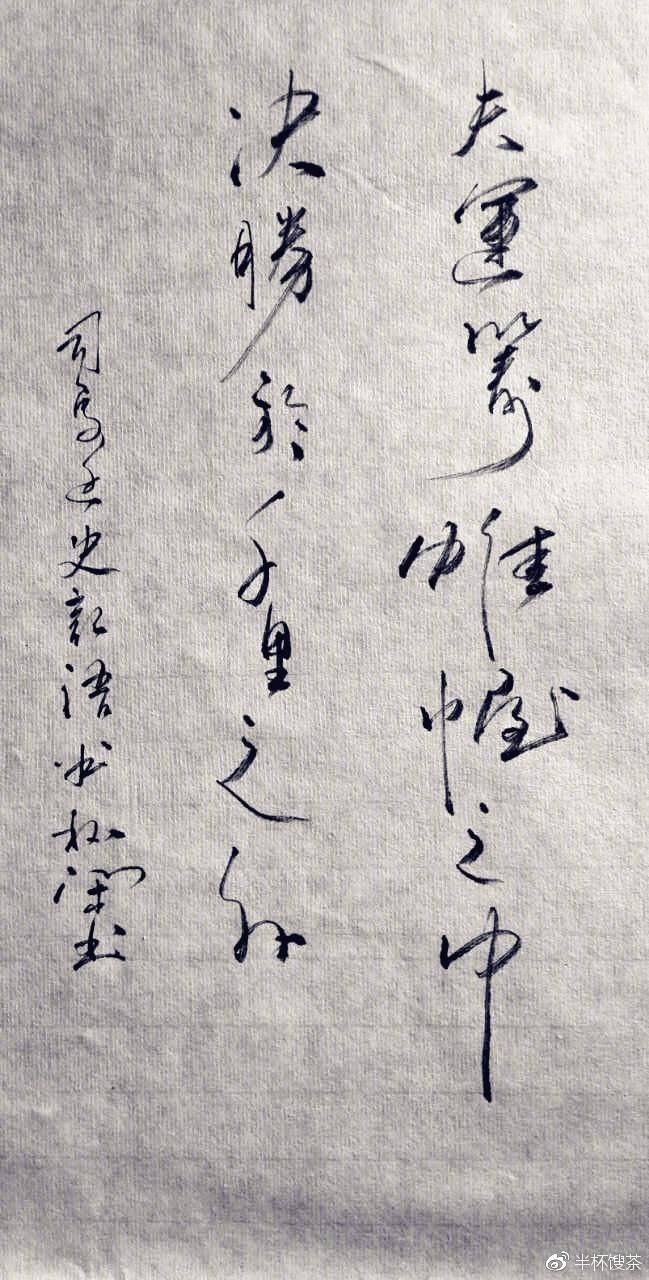 夫運籌帷幄之中
決勝於千里之外
司馬迁史記语 松瀾书
半杯馊茶